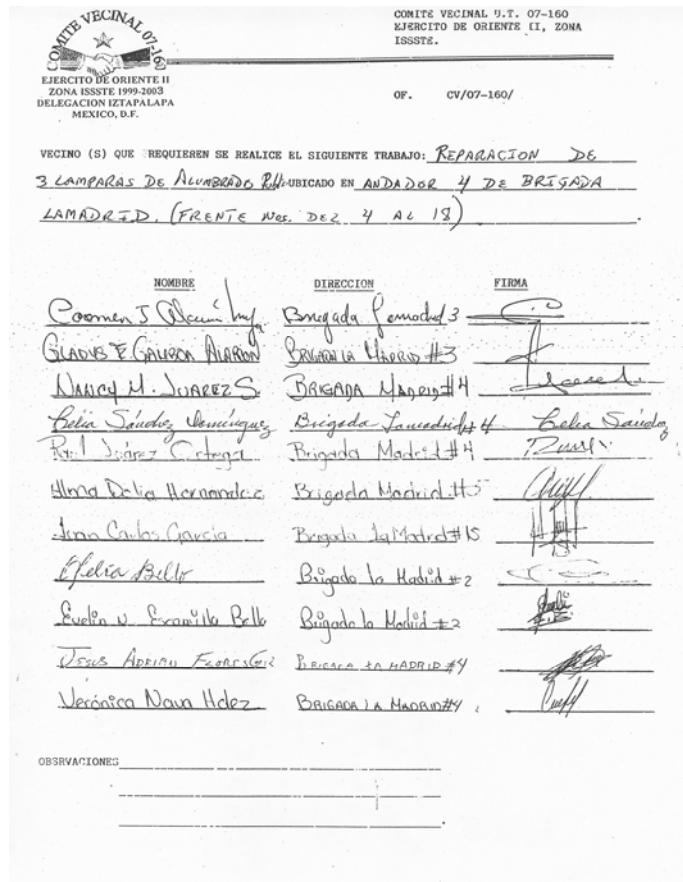 COMITE VECINAL 07-160
EJERCITO DE ORIENTE II
ZONA ISSSTE 1999-2003
DELEGACION IZTAPALAPA
MEXICO, D.F.
COMITE VECINAL U.T. 07-160
EJERCITO DE ORIENTE II, ZONA
ISSSTE.
OF. CV/07-160/
VECINO (S) QUE REQUIEREN SE REALICE EL SIGUIENTE TRABAJO: REPARACION DE
3 LAMPARAS DE ALUMBRADO UBICADO EN ANDADOR 4 DE BRIGADA
LAMADRID. (FRENTE Nos. DEL 4 AL 18).
NOMBRE DIRECCION FIRMA
Carmen J Brigada Lamadrid 3
GLADYS E. BRIGADA LA MADRID #3
NANCY M. JUAREZ S. BRIGADA MADRID #4
Celia Sánchez Domínguez Brigada Lamadrid #4 Celia Sánchez
Raúl Juárez Ortega Brigada Madrid #4
Alma Delia Hernandez Brigada Madrid #5
Juan Carlos Garcia Brigada La Madrid #15
Ofelia Bello Brigada la Madrid #2
Evelin N. Escamilla Bello Brigada la Madrid #2
JESUS ADRIAN FLORES GIL BRIGADA LA MADRID #4
Verónica Nava Hdez BRIGADA LA MADRID #4
OBSRVACIONES